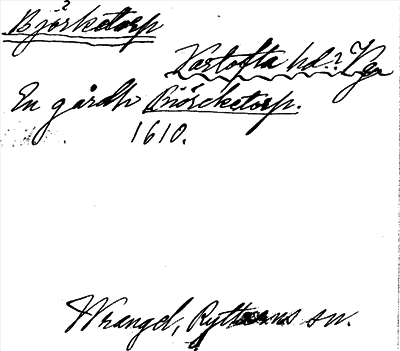 Björketorp
Karlofta hd? Vg
En gårdh Biörcketorp.
1610.
Wrangel, Ryttarens sn.